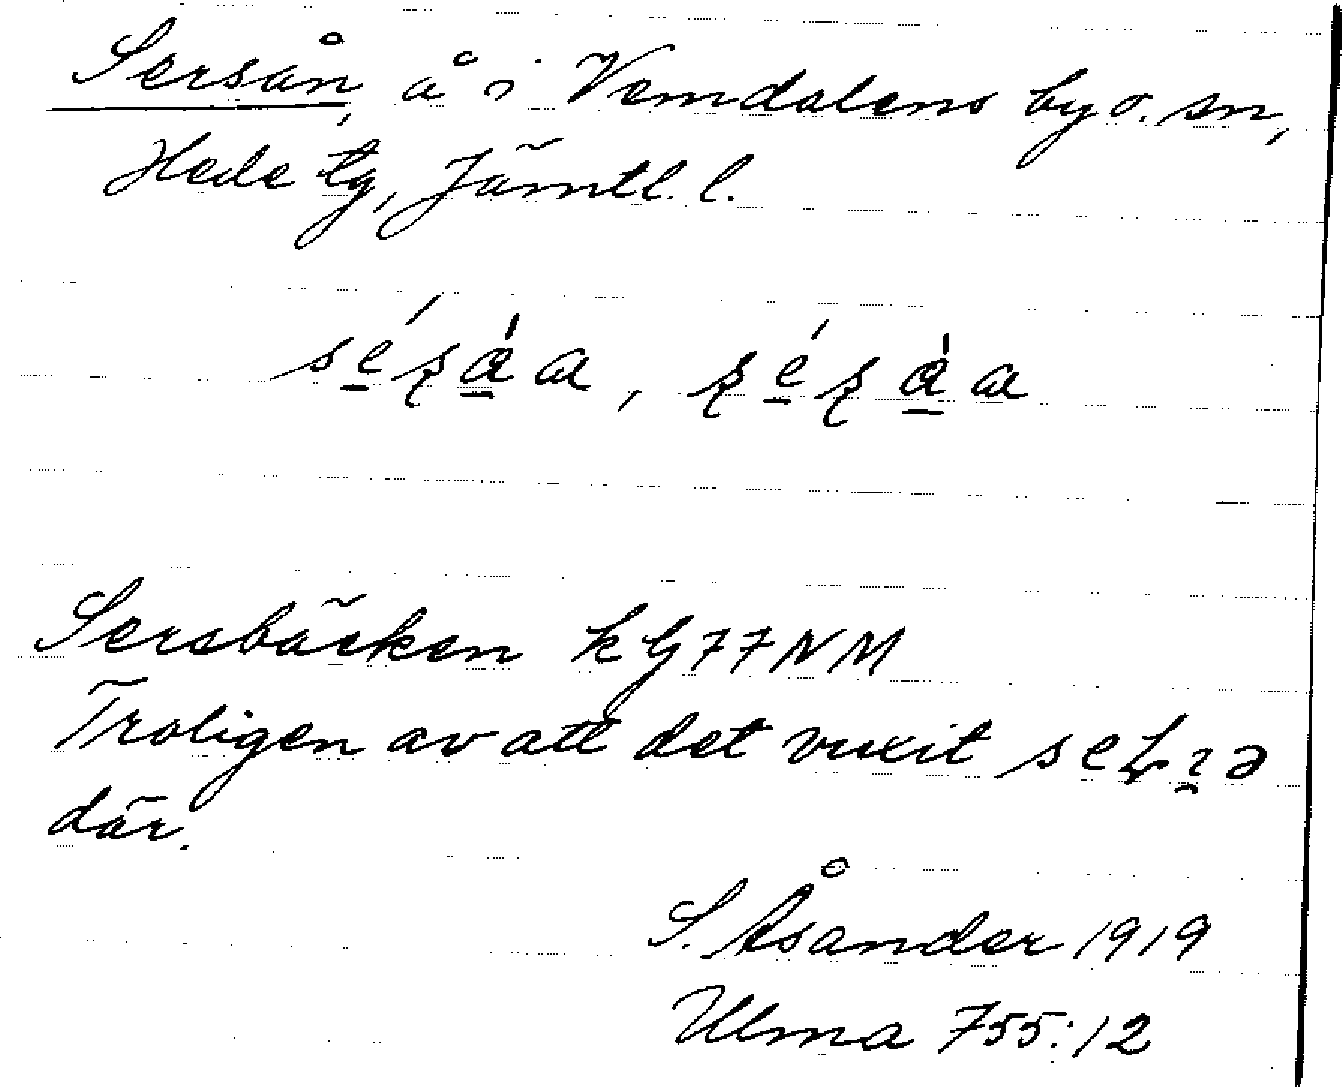 Sersån, å i Vemdalens by o. sn,
Hede tg, Jämtl. l.
Sersbäcken k G77NM
Troligen av att det vuxit
där.
S. Åsander 1919
Ulma 755:12